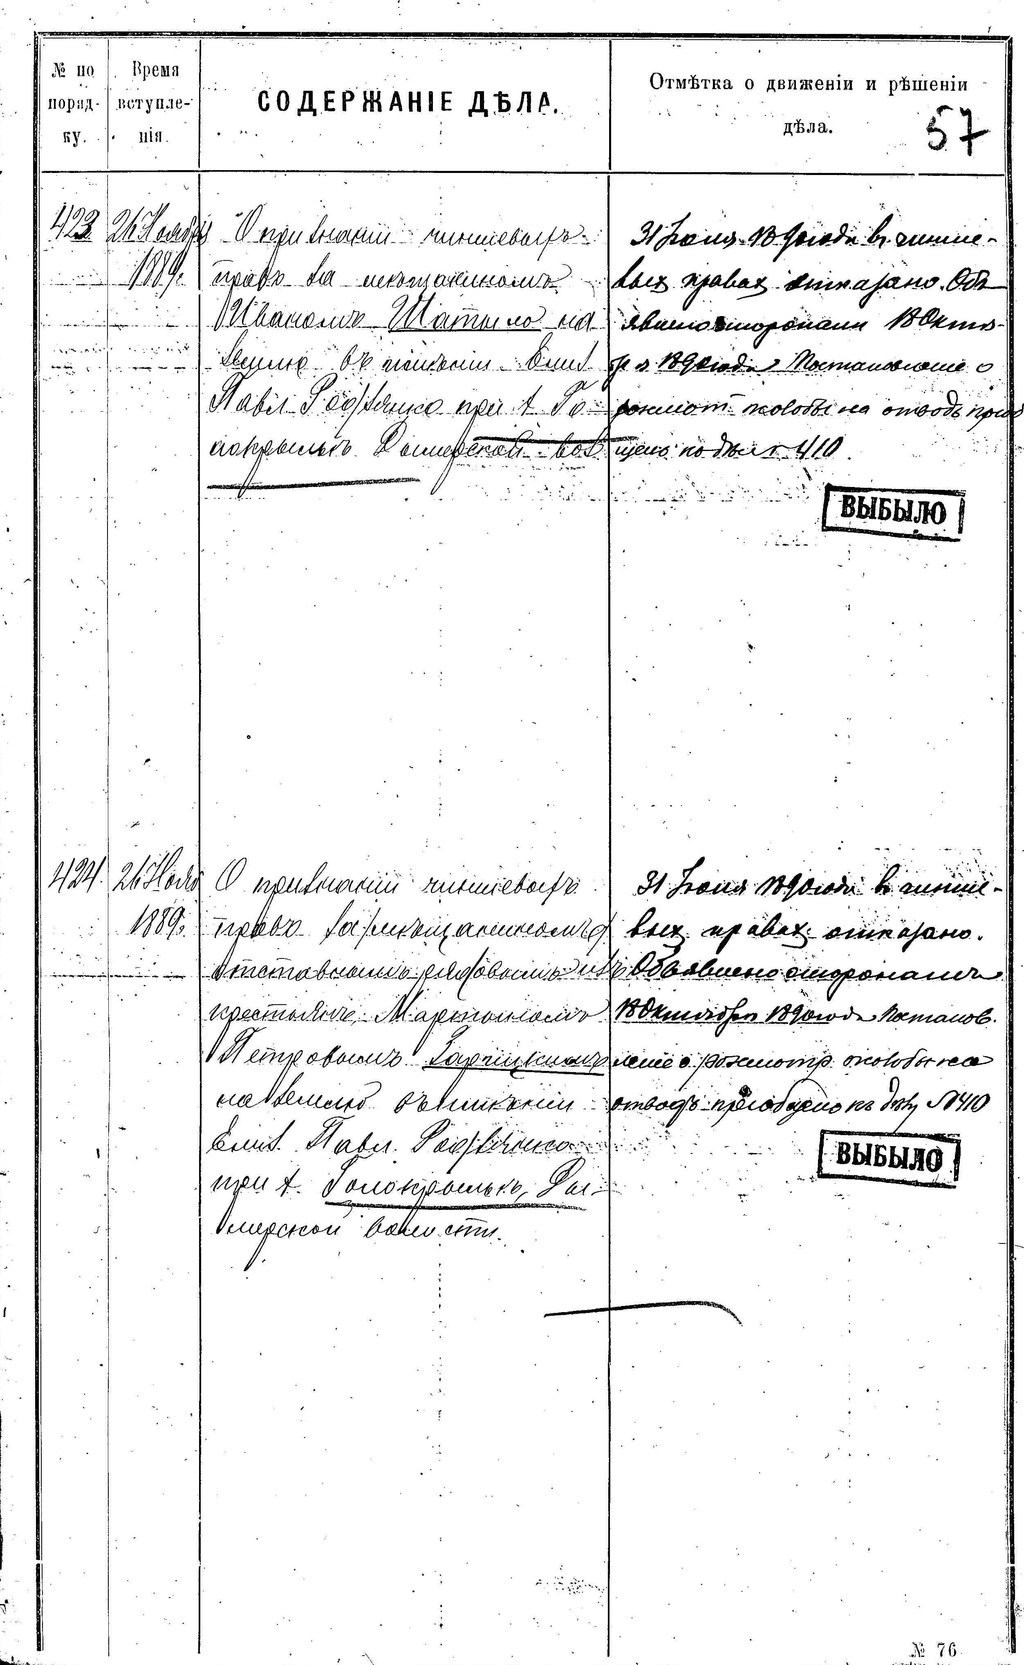 № по порядку.
Время вступленія.
СОДЕРЖАНІЕ ДѢЛА.
Отмѣтка о движеніи и рѣшеніи
дѣла.
57
423
26 Ноября
1889.
О признаніи чиншевыхъ
правъ за мѣщаниномъ
Иваномъ Шатыло на
землю въ имѣніи Елиз.
Павл. Родзянко при д. Го-
локрылыхъ Дымерской вол.
31 Іюля 1890 года въ чинше-
выхъ правах отказано. Объ
явлено сторонами 18 Октяб-
ря 1890 года Постановленіе о
розсмот. жалобы на отводъ пріоб
щено къ дѣлу № 410.
ВЫБЫЛО
424.
26 Нояб
1889.
О признаніи чиншевыхъ
правъ за мѣщаниномъ
отставнымъ рядовымъ изъ
крестьянъ, Мартыномъ
Петровымъ
на землю въ имѣніи
Елиз. Павл. Родзянко
при д. Голокрылыхъ, Ды-
мерской волости.
31 Іюля 1890 года въ чинше-
выхъ правах отказано.
Объявлено сторонамъ
18 Октября 1890 года Постанов.
леніе о розсмотр. жалобы на
отводъ пріобщено къ дѣлу № 410
ВЫБЫЛО
№ 76